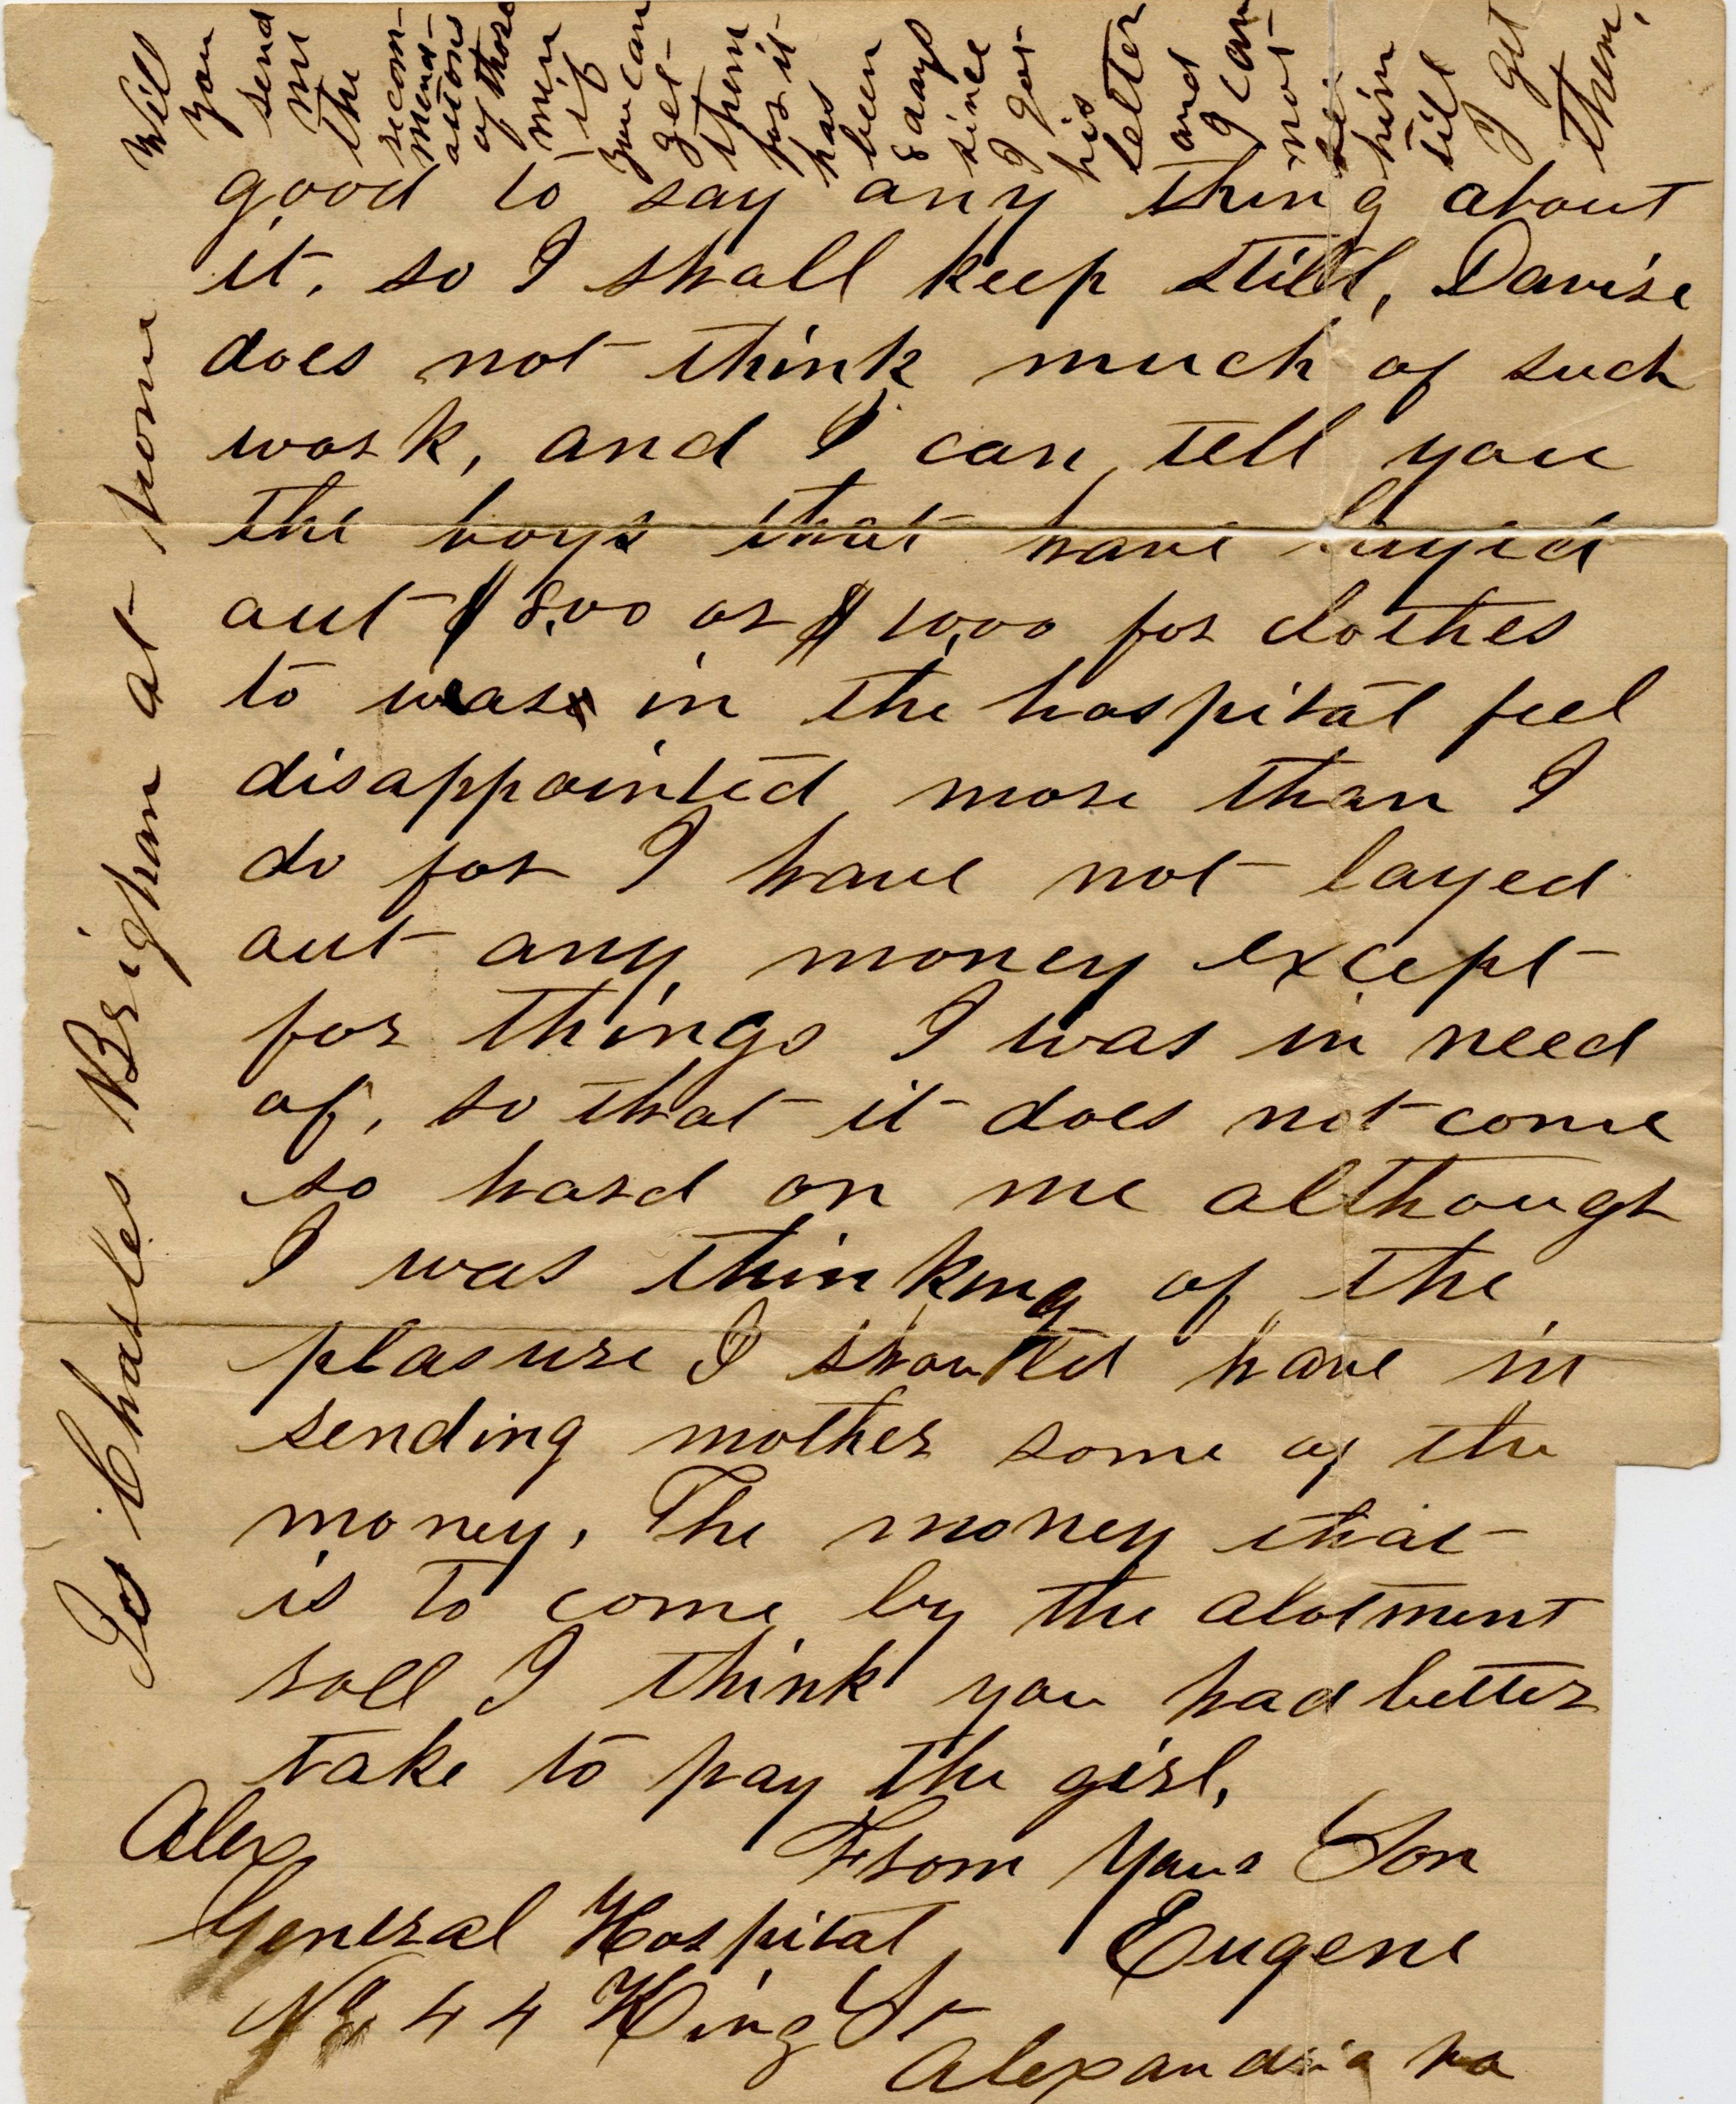 Will
you
send
me
the
recom-
mend-
ations
of those
men
if
you can
get
them
for it
has
been
8 days
since
I got
his
letter
and
I can
not
him
till
I get
them,
good to say any thing about
it, so I shall keep still, Davise
does not think much of such
work, and I can tell you
the boys that have layed
out $8.00 or $10.00 for clothes
to wear in the hospital feel
disappointed more than I
do for I have not layed
out any money except
for things I was in need
of, so that it does not come
so hard on me although
I was thinking of the
plasure I should have in
sending mother some of the
money, The money that
is to come by the alotment
roll I think you had better
take to pay the girl,
From Your Son
Eugene
Alex
General Hospital
No 44 King St
Alexandria Va
To Charles Brigham at home